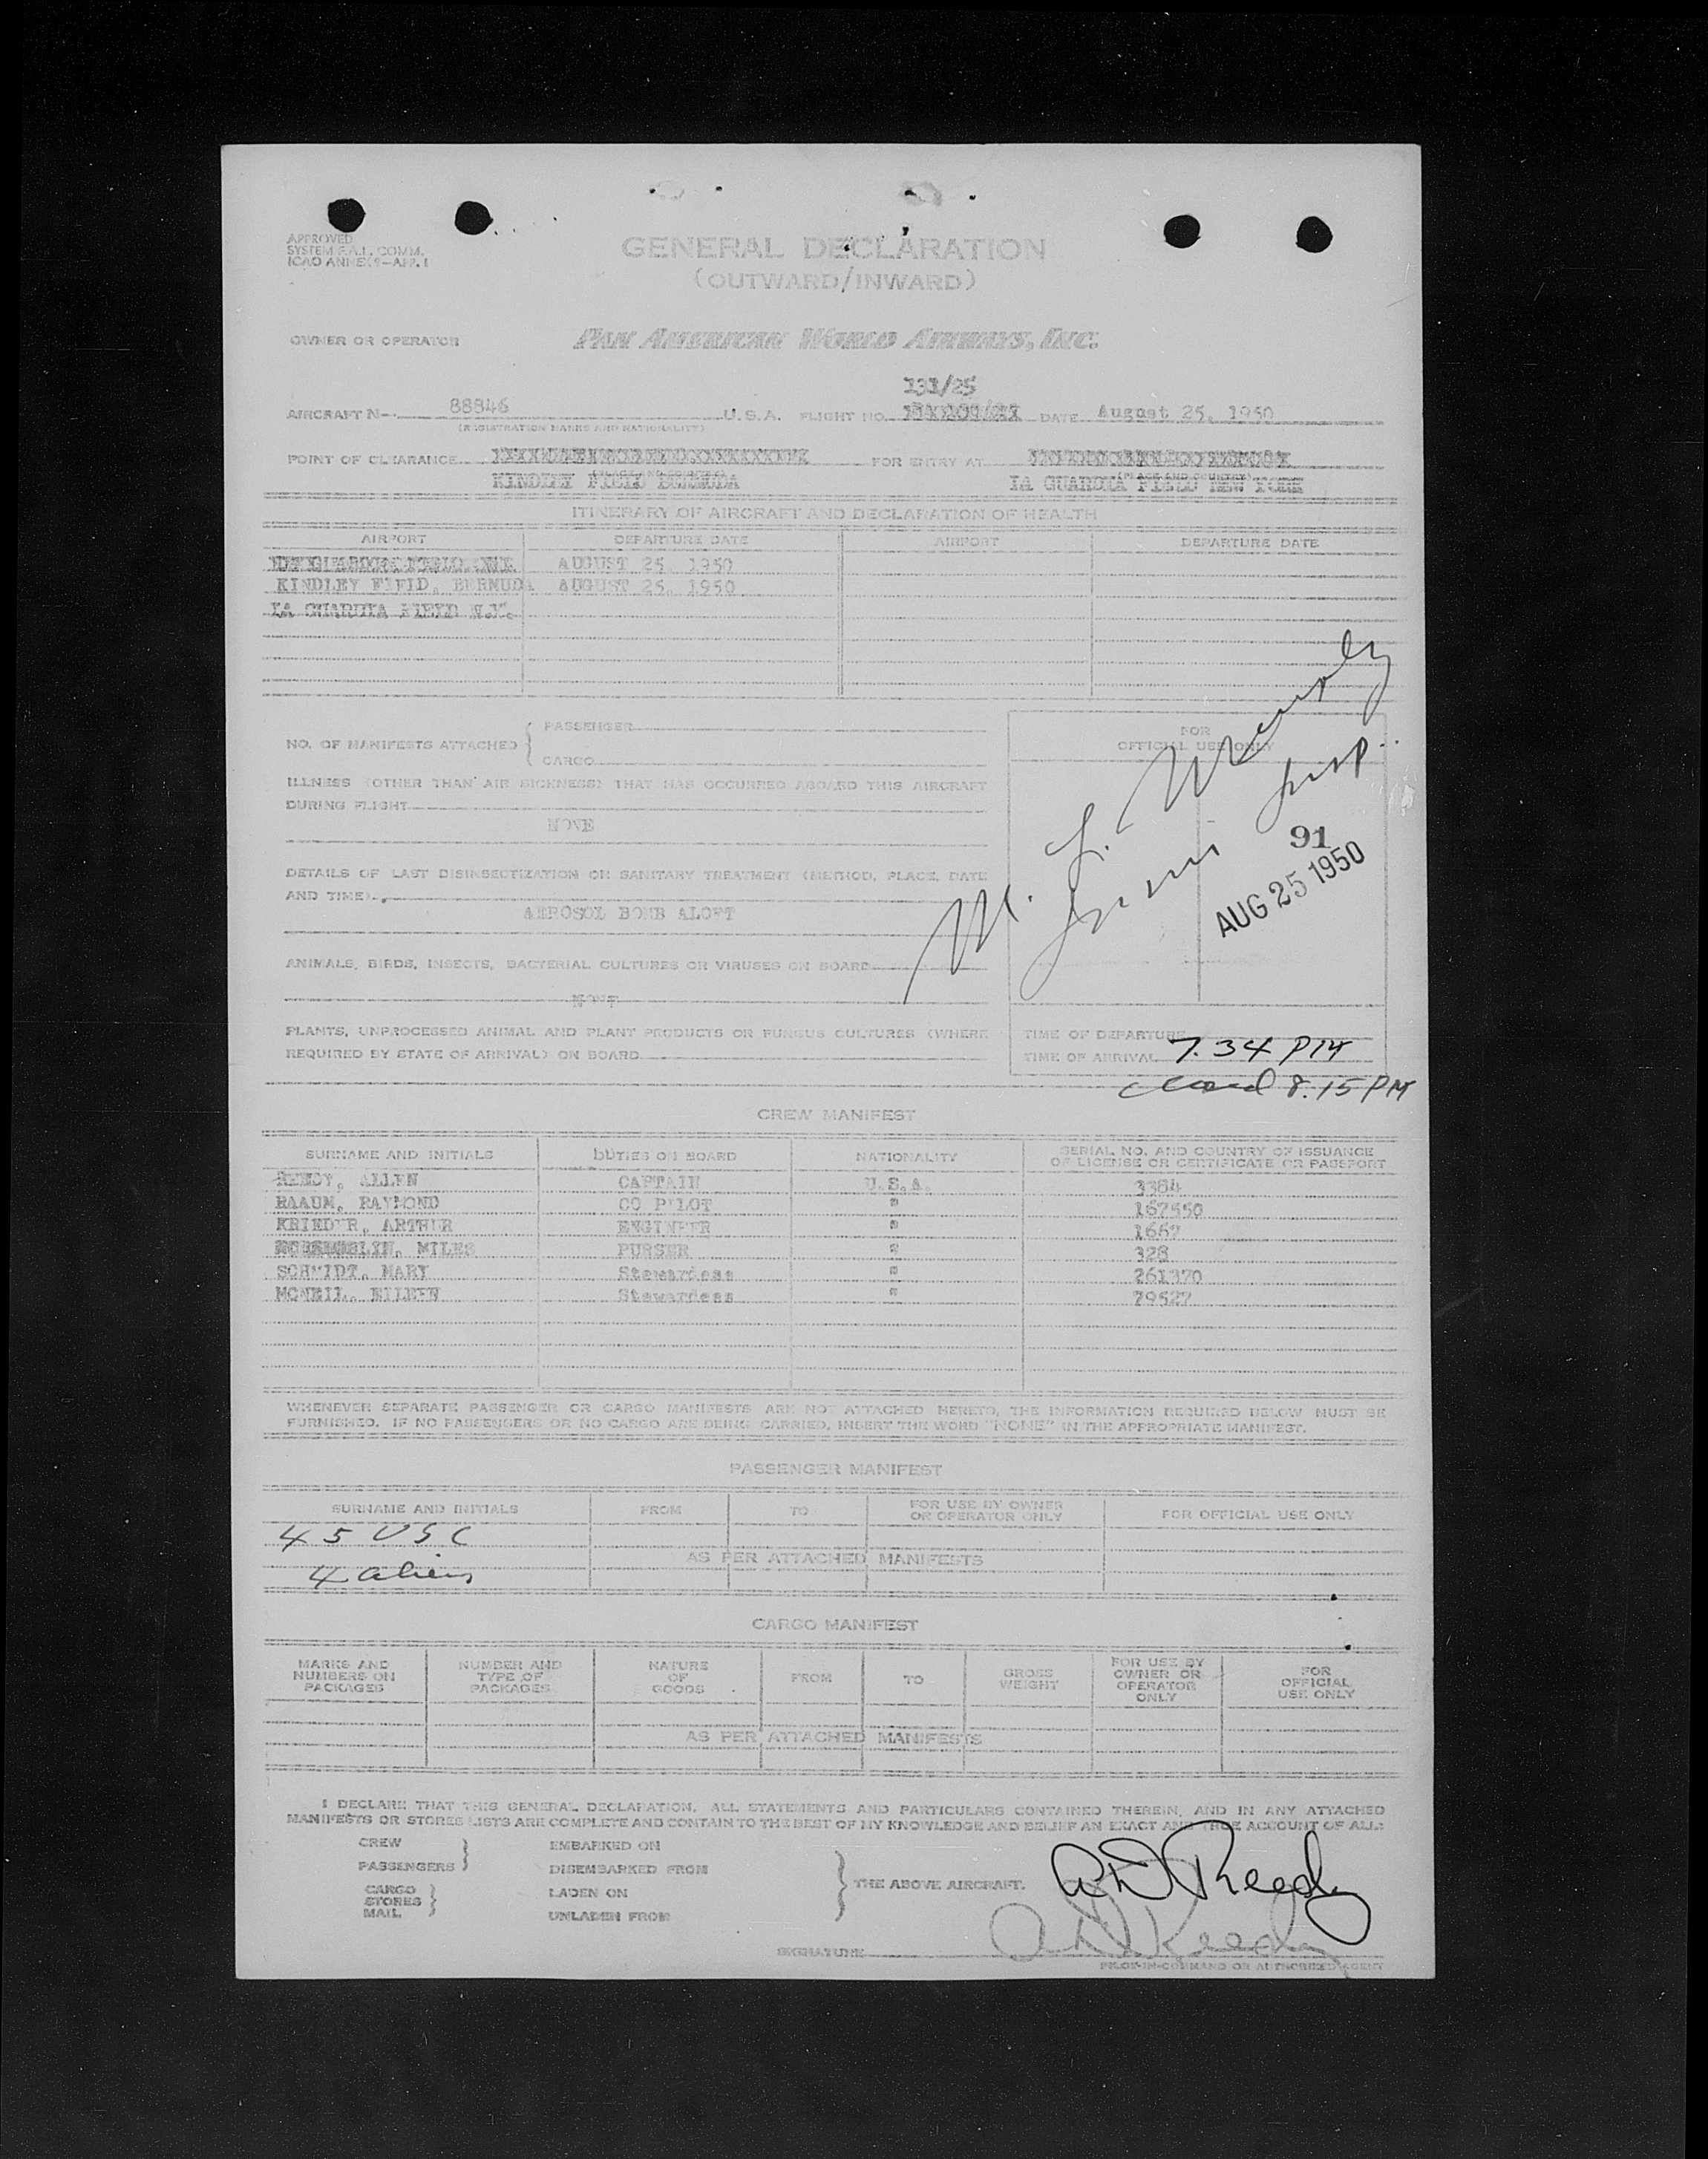 APPROVED
SYSTEM F.A.L. COMM.
ICAO ANNEX 9—APP. 1
GENERAL DECLARATION
(OUTWARD/INWARD)
OWNER OR OPERATOR PAN AMERICAN WORLD AIRWAYS, INC.
131/25
AIRCRAFT N— 88846 U.S.A. FLIGHT NO. DATE August 25, 1950
(REGISTRATION MARKS AND NATIONALITY)
POINT OF CLEARANCE FOR ENTRY AT
KINDLEY FIELD BERMUDA LA GUARDIA FIELD NEW YORK
ITINERARY OF AIRCRAFT AND DECLARATION OF HEALTH
AIRPORT DEPARTURE DATE AIRPORT DEPARTURE DATE
AUGUST 25 1950
KINDLEY FIELD, BERMUDA AUGUST 25, 1950
LA GUARDIA FIELD N.Y.
NO. OF MANIFESTS ATTACHED { PASSENGER
CARGO
FOR
OFFICIAL USE ONLY
ILLNESS (OTHER THAN AIR SICKNESS) THAT HAS OCCURRED ABOARD THIS AIRCRAFT
DURING FLIGHT
NONE
DETAILS OF LAST DISINSECTIZATION OR SANITARY TREATMENT (METHOD, PLACE, DATE
AND TIME)
AEROSOL BOMB ALOFT
M. L.
91
AUG 25 1950
ANIMALS, BIRDS, INSECTS, BACTERIAL CULTURES OR VIRUSES ON BOARD
NONE
PLANTS, UNPROCESSED ANIMAL AND PLANT PRODUCTS OR FUNGUS CULTURES (WHERE
REQUIRED BY STATE OF ARRIVAL) ON BOARD
TIME OF DEPARTURE
TIME OF ARRIVAL 7.34 PM
8.15 PM
CREW MANIFEST
SURNAME AND INITIALS DUTIES ON BOARD NATIONALITY SERIAL NO. AND COUNTRY OF ISSUANCE
OF LICENSE OR CERTIFICATE OR PASSPORT
REEDY, ALLEN CAPTAIN U.S.A. 3384
BAAUM, RAYMOND CO PILOT " 167550
KRIEDER, ARTHUR ENGINEER " 1667
MILES PURSER " 328
SCHMIDT, MARY Stewardess " 261370
MCNEIL, EILEEN Stewardess " 79527
WHENEVER SEPARATE PASSENGER OR CARGO MANIFESTS ARE NOT ATTACHED HERETO, THE INFORMATION REQUIRED BELOW MUST BE
FURNISHED. IF NO PASSENGERS OR NO CARGO ARE BEING CARRIED, INSERT THE WORD "NONE" IN THE APPROPRIATE MANIFEST.
PASSENGER MANIFEST
SURNAME AND INITIALS FROM TO FOR USE BY OWNER
OR OPERATOR ONLY FOR OFFICIAL USE ONLY
45 USC
AS PER ATTACHED MANIFESTS
4 aliens
CARGO MANIFEST
MARKS AND
NUMBERS ON
PACKAGES NUMBER AND
TYPE OF
PACKAGES NATURE
OF
GOODS FROM TO GROSS
WEIGHT FOR USE BY
OWNER OR
OPERATOR
ONLY FOR
OFFICIAL
USE ONLY
AS PER ATTACHED MANIFESTS
I DECLARE THAT THIS GENERAL DECLARATION, ALL STATEMENTS AND PARTICULARS CONTAINED THEREIN, AND IN ANY ATTACHED
MANIFESTS OR STORES LISTS ARE COMPLETE AND CONTAIN TO THE BEST OF MY KNOWLEDGE AND BELIEF AN EXACT AND TRUE ACCOUNT OF ALL:
CREW EMBARKED ON
PASSENGERS DISEMBARKED FROM
CARGO LADEN ON THE ABOVE AIRCRAFT.
STORES
MAIL UNLADEN FROM
A D Reedy
A D Reedy
SIGNATURE
PILOT-IN-COMMAND OR AUTHORIZED AGENT